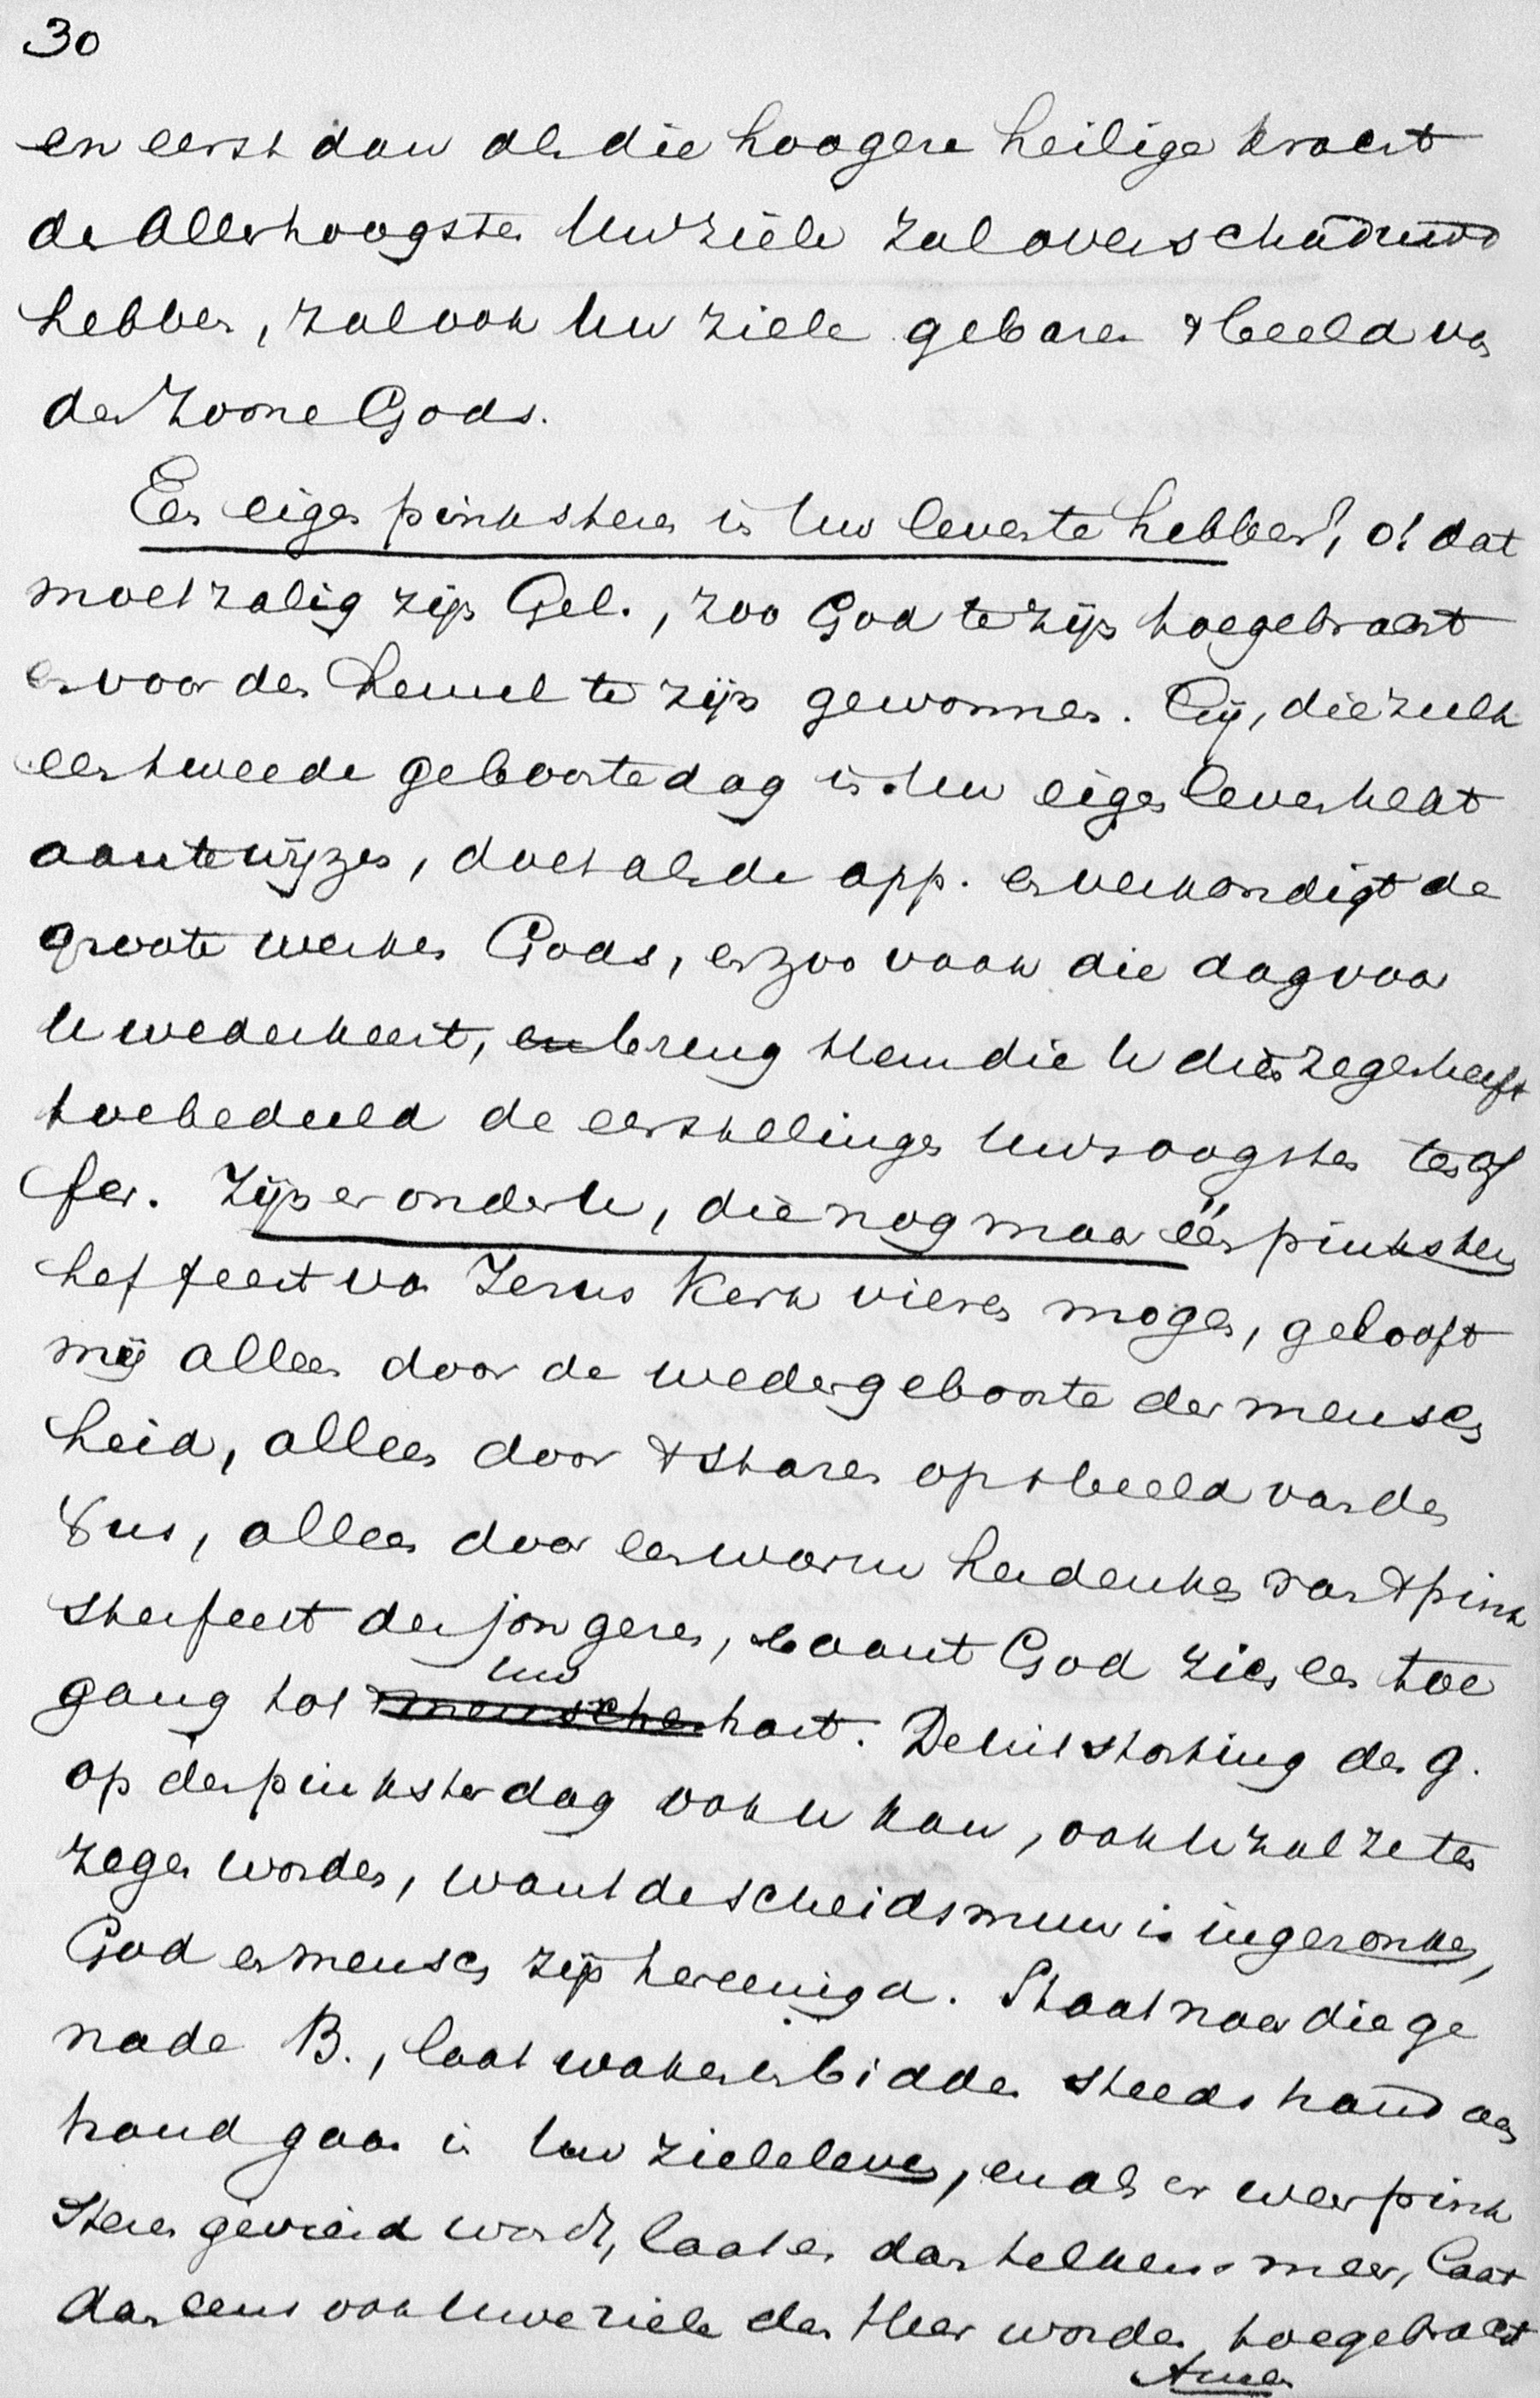 30
en eerst dan als die hoogere heilige kracht
des Allerhoogsten Uw ziele zal overschaduwd
hebben, zal ook Uw ziele gebaren 't beeld van
den Zoone Gods.
Een eigen pinksteren in Uw leven te hebben, o! dat
moet zalig zijn Gel., zoo God te zijn toegebracht
en voor den hemel te zijn gewonnen. Gij, die zulk
een tweede geboortedag in Uw eigen leven hebt
aan te wijzen, doet als de app. en verkondigt de
groote werken Gods, en zoo vaak die dag voor
U wederkeert, en breng Hem die U dien zegen heeft
toebedeeld de eerstelingen Uws oogsten ten of
fer. Zijn er onder U, die nog maar één pinksteren
het feest van Jezus Kerk vieren mogen, gelooft
mij alleen door de wedergeboorte der mensch
heid, alleen door 't staren op 't beeld van den
Zus, alleen door een warm herdenken van 't pink
sterfeest der jongeren, baant God zich een toe
gang tot 't menschen Uw hart. De uitstorting des g.
op den pinksterdag ook U kan, ook U zal ze ten
zegen worden, want de scheidsmuur is ingezonken,
God en mensch zijn hereenigd. Staat naar die ge
nade B., laat waken en bidden steeds hand aan
hand gaan in Uw zieleleven, en als er weer pink
steren gevierd wordt, laat er dan telkens meer, laat
dan eens ook Uwe ziele den Heer worden toegebracht
Amen